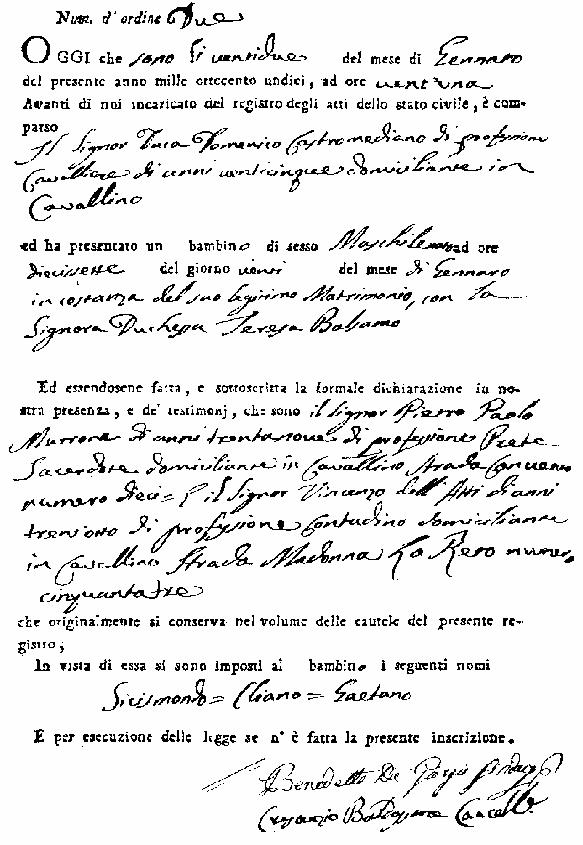 Num. d' ordine Due
OGGI che sono li ventidue del mese di Gennaro
del presente anno mille ottecento undici, ad ore vent'una
Avanti di noi incaricato del registro degli atti dello stato civile, è com-
parso
Il Signor Duca Domenico Castromediano di professione
Cavaliere di anni venticinque domiciliante in
Cavallino
ed ha presentato un bambino di sesso Maschile ad ore
diecisette del giorno venti del mese di Gennaro
in costanza del suo legitimo Matrimonio, con la
Signora Duchessa Teresa Balsamo
Ed essendosene fatta, e sottoscritta la formale dichiarazione in no-
stra presenza, e de' testimonj, che sono il Signor Pietro Paolo
Murrone di anni trentanove di professione Prete
Sacerdote domiciliante in Cavallino Strada Convento
numero dieci = E il Signor Vincenzo dell' Atti di anni
trentotto di professione Contadino domiciliante
in Cavallino Strada Madonna numero
cinquantatre
che originalmente si conserva nel volume delle cautele del presente re-
gistro;
In vista di essa si sono imposti al bambino i seguenti nomi
Sicismondo = Cliano = Gaetano
E per esecuzione delle legge se n' è fatta la presente inscrizione.
Benedetto De Giorgi Sindaco
Cancell.